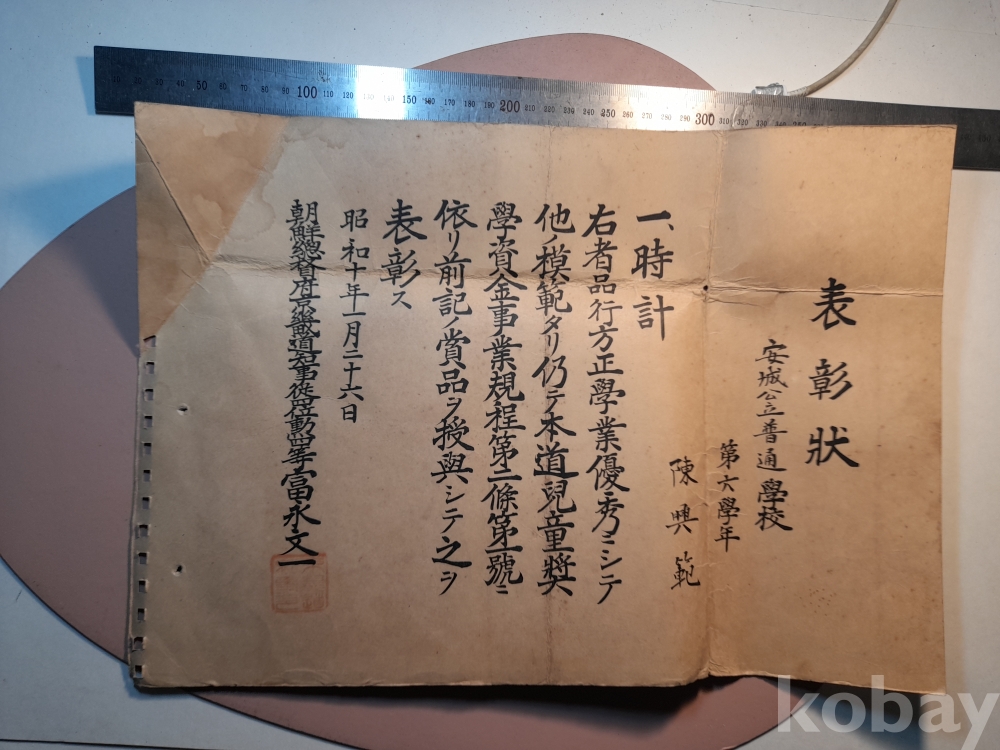 表彰狀
安城公立普通學校
第六學年
陳興範
一、時計
右者品行方正學業優秀ニシテ
他ノ模範タリ仍テ本道兒童奬
學資金事業規程第二條第一號ニ
依リ前記ノ賞品ヲ授與シテ之ヲ
表彰ス
昭和十年一月二十六日
朝鮮總督府京畿道知事從四位勳四等富永文一
10 20 30 40 50 60 70 80 90 100 110 120 130 140 150 160 170 180 190 200 210 220 230 240 250 260 270 280 290 300 310 320 330 340
kobay